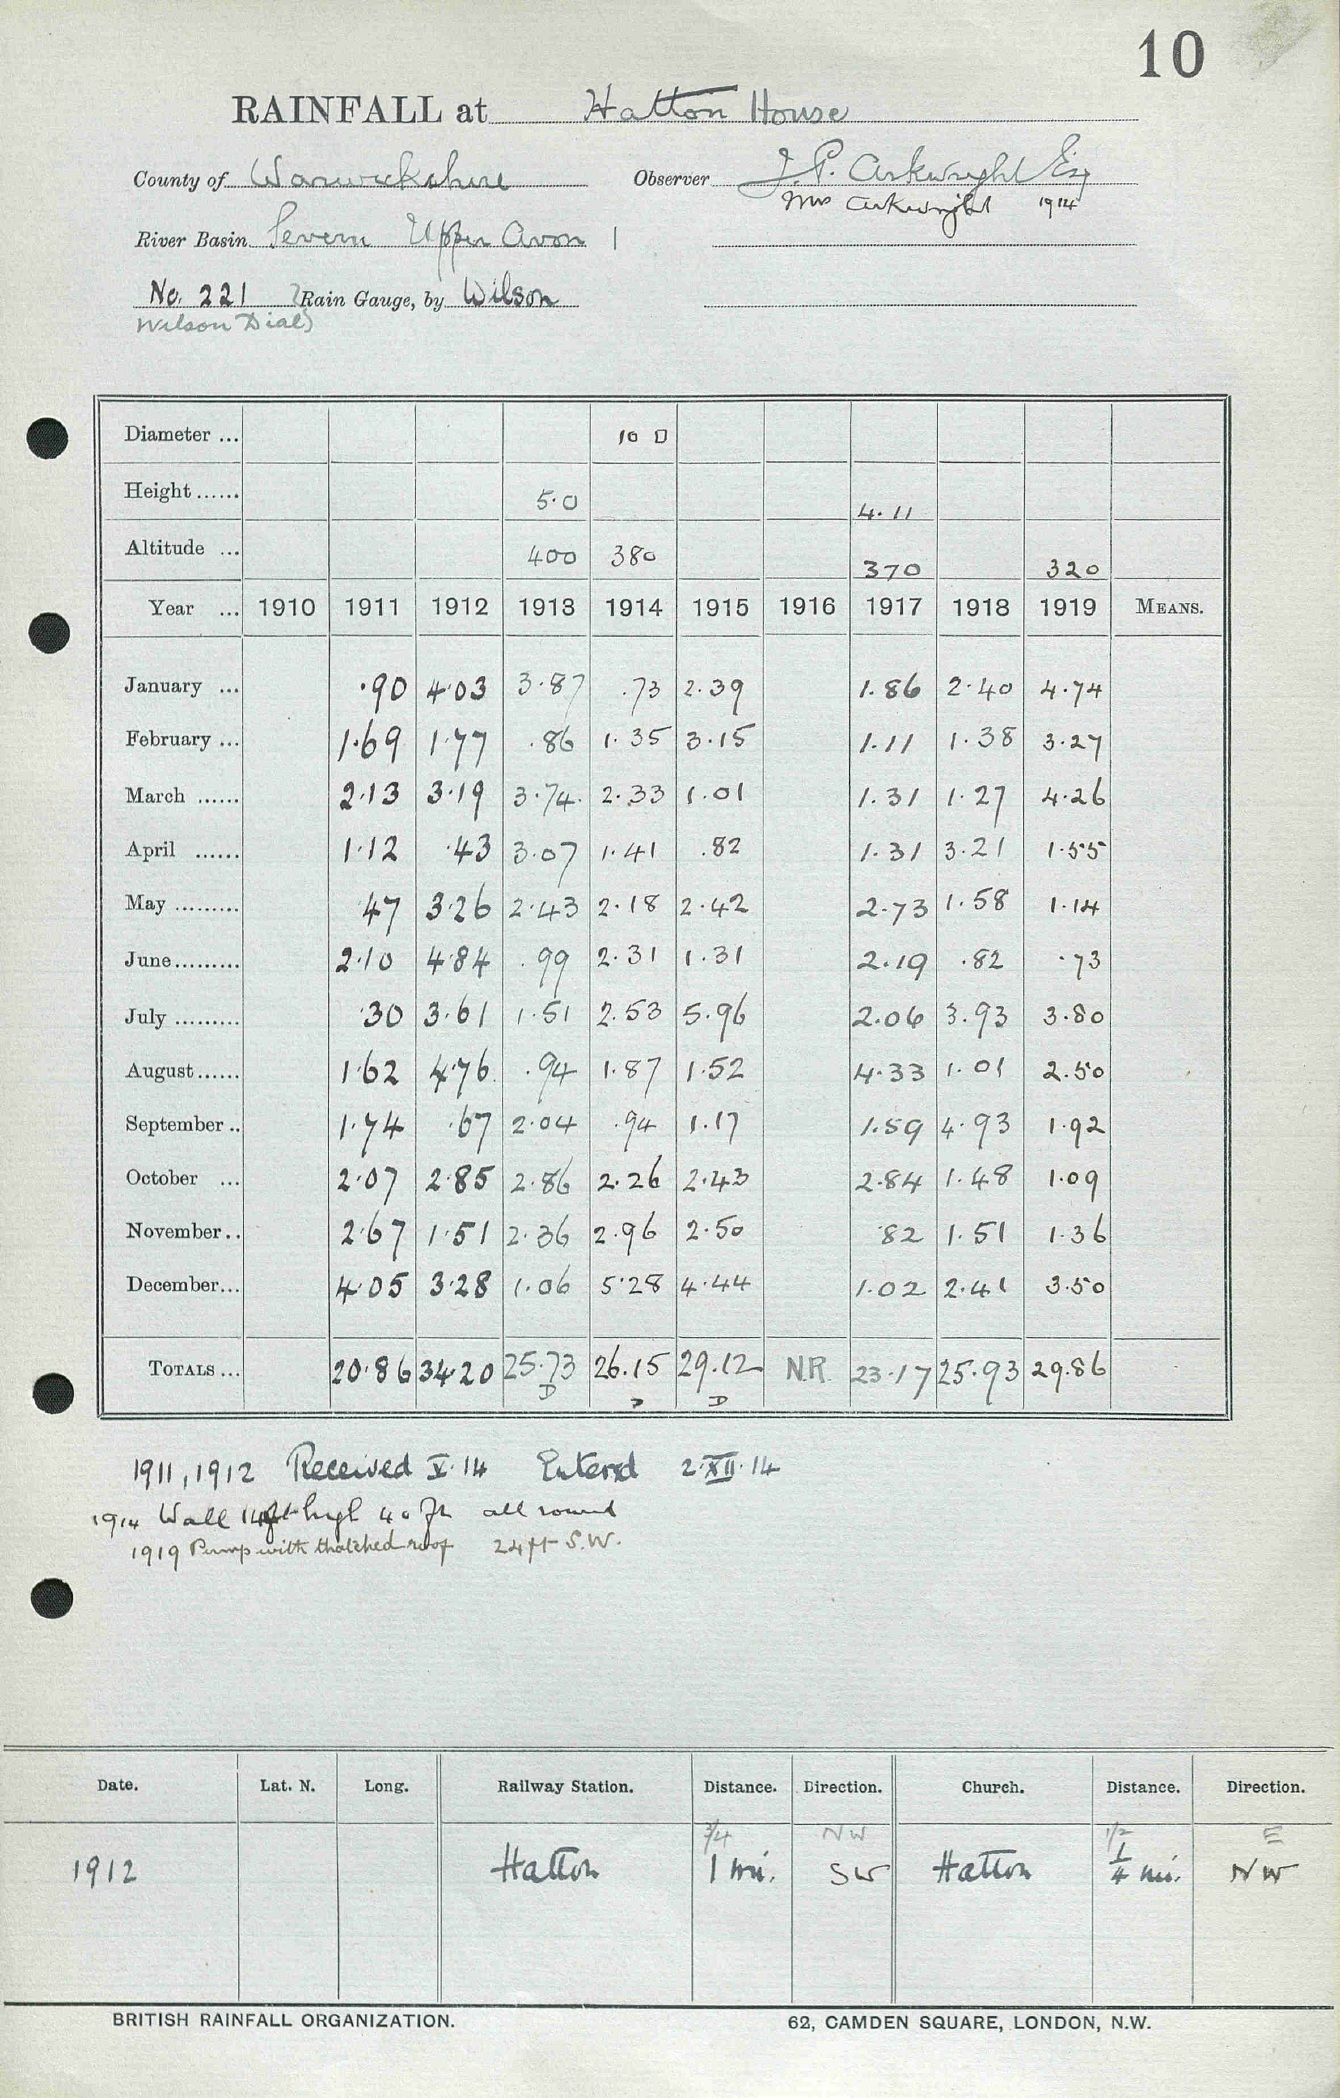 10
RAINFALL at Hatton House
County of Warwickshire Observer J. P. Arkwright Esq
Mrs Arkwright 1914
River Basin Severn Upper Avon
No. 221 ? Rain Gauge, by Wilson
Wilson Dial)
Diameter ... 10 □
Height...... 5·0 4·11
Altitude ... 400 380 370 320
Year ... 1910 1911 1912 1913 1914 1915 1916 1917 1918 1919 MEANS.
January ... ·90 4·03 3·87 ·73 2·39 1·86 2·40 4·74
February ... 1·69 1·77 ·86 1·35 3·15 1·11 1·38 3·27
March ...... 2·13 3·19 3·74 2·33 1·01 1·31 1·27 4·26
April ...... 1·12 ·43 3·07 1·41 ·82 1·31 3·21 1·55
May ......... ·47 3·26 2·43 2·18 2·42 2·73 1·58 1·14
June......... 2·10 4·84 ·99 2·31 1·31 2·19 ·82 ·73
July ......... ·30 3·61 1·51 2·53 5·96 2·06 3·93 3·80
August...... 1·62 4·76 ·94 1·87 1·52 4·33 1·01 2·50
September .. 1·74 ·67 2·04 ·94 1·17 1·59 4·93 1·92
October ... 2·07 2·85 2·86 2·26 2·43 2·84 1·48 1·09
November.. 2·67 1·51 2·36 2·96 2·50 ·82 1·51 1·36
December... 4·05 3·28 1·06 5·28 4·44 1·02 2·41 3·50
TOTALS ... 20·86 34·20 25·73 26·15 29·12 N.R. 23·17 25·93 29·86
D D D
1911, 1912 Received V·14 Entered 2·XII·14
1914 Wall 14ft high 40 ft all round
1919 Pump with thatched roof 24 ft S.W.
Date. Lat. N. Long. Railway Station. Distance. Direction. Church. Distance. Direction.
3/4 NW 1/2 E
1912 Hatton 1 mi. SW Hatton 1/4 mi. NW
BRITISH RAINFALL ORGANIZATION. 62, CAMDEN SQUARE, LONDON, N.W.